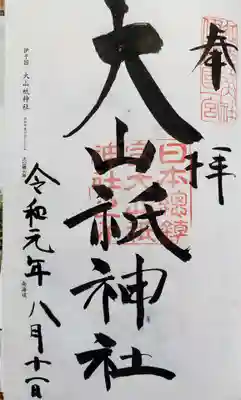 奉拝
大山祇神社
日本總鎮
伊予国 大山祇神社
令和元年八月十一日